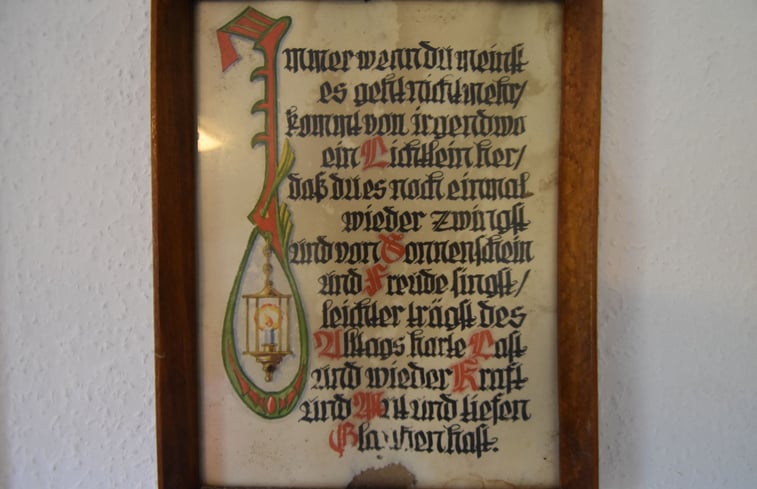 Immer wenn du meinst
es geht nicht mehr/
kommt von irgendwo
ein Lichtlein her/
daß du es noch einmal
wieder zwingst
und von Sonnenschein
und Freude singst/
leichter trägst des
Alltags harte Last
und wieder Kraft
und Mut und tiefen
Glauben hast.